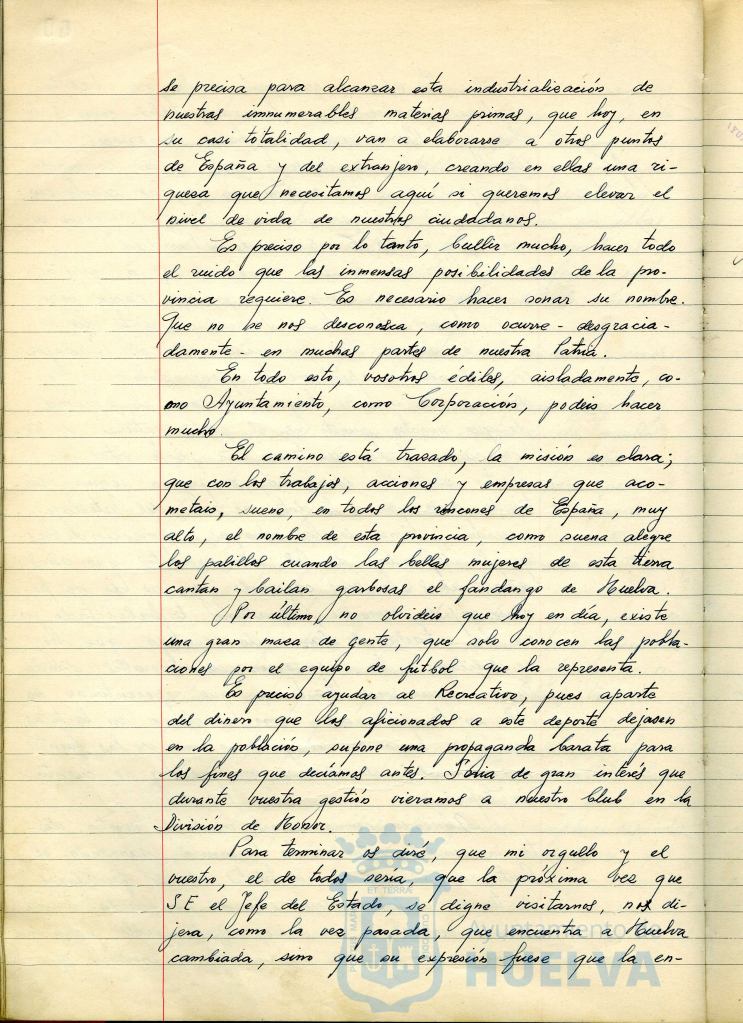 se precisa para alcanzar esta industrialización de
nuestras innumerables materias primas, que hoy, en
su casi totalidad, van a elaborarse a otros puntos
de España y del extranjero, creando en ellas una ri-
queza que necesitamos aquí si queremos elevar el
nivel de vida de nuestros ciudadanos.
Es preciso por lo tanto, bullir mucho, hacer todo
el ruido que las inmensas posibilidades de la pro-
vincia requiere. Es necesario hacer sonar su nombre.
Que no se nos desconozca, como ocurre - desgracia-
damente - en muchas partes de nuestra Patria.
En todo esto, vosotros édiles, aisladamente, co-
mo Ayuntamiento, como Corporación, podeis hacer
mucho.
El camino está trazado, la misión es clara;
que con los trabajos, acciones y empresas que aco-
metais, suene, en todos los rincones de España, muy
alto, el nombre de esta provincia, como suena alegre
los palillos cuando las bellas mujeres de esta tierra
cantan y bailan garbosas el fandango de Huelva.
Por último, no olvideis que hoy en día, existe
una gran masa de gente, que solo conocen las pobla-
ciones por el equipo de fútbol que la representa.
Es preciso ayudar al Recreativo, pues aparte
del dinero que los aficionados a este deporte dejasen
en la población, supone una propaganda barata para
los fines que decíamos antes. Sería de gran interés que
durante vuestra gestión vieramos a nuestro Club en la
División de Honor.
Para terminar os diré, que mi orgullo y el
vuestro, el de todos sería, que la próxima vez que
S E el Jefe del Estado, se digne visitarnos, nos di-
jera, como la vez pasada, que encuentra a Huelva
cambiada, sino que su expresión fuese que la en-
ET TERRAE
Ayuntamiento
HUELVA